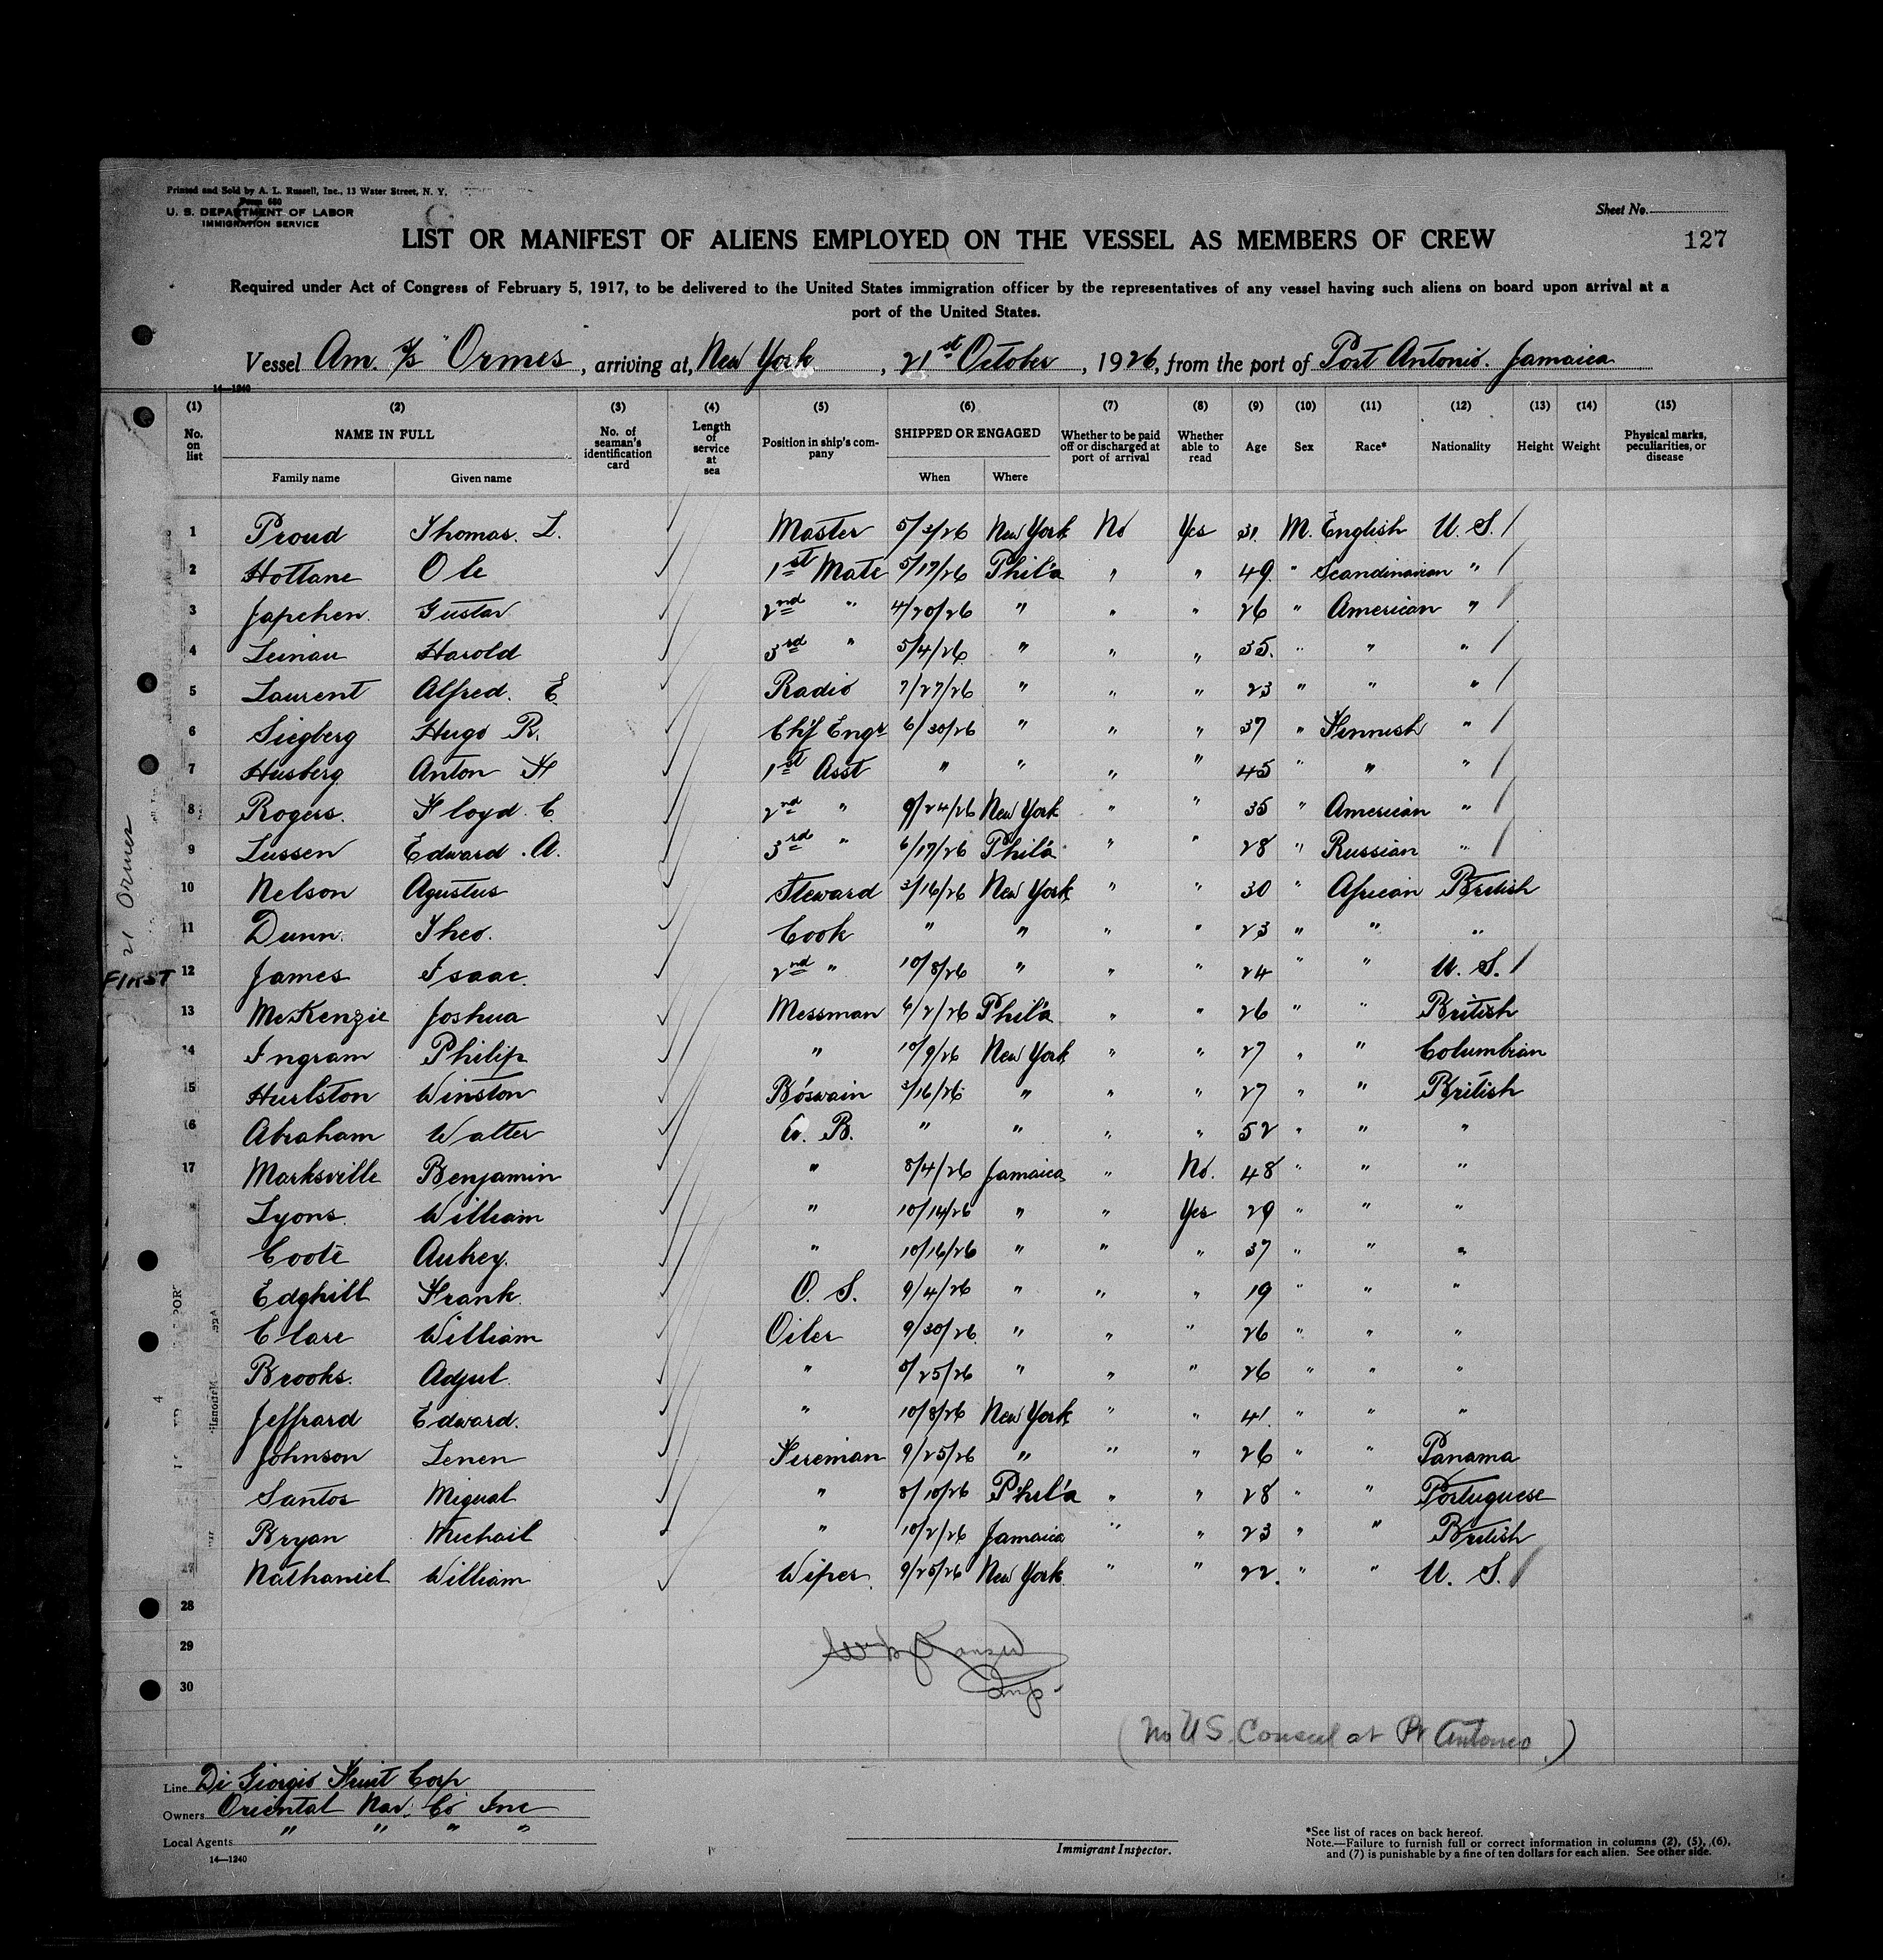 Printed and Sold by A. L. Russell, Inc., 13 Water Street, N. Y.
Form 680
U. S. DEPARTMENT OF LABOR
IMMIGRATION SERVICE
Sheet No.
127
LIST OR MANIFEST OF ALIENS EMPLOYED ON THE VESSEL AS MEMBERS OF CREW
Required under Act of Congress of February 5, 1917, to be delivered to the United States immigration officer by the representatives of any vessel having such aliens on board upon arrival at a
port of the United States.
Vessel Am. S/S "Ormes, arriving at, New York, 21st October, 1926, from the port of Port Antonio. Jamaica
14—1240
(1) (2) (3) (4) (5) (6) (7) (8) (9) (10) (11) (12) (13) (14) (15)
No. on list NAME IN FULL No. of seaman's identification card Length of service at sea Position in ship's company SHIPPED OR ENGAGED Whether to be paid off or discharged at port of arrival Whether able to read Age Sex Race* Nationality Height Weight Physical marks, peculiarities, or disease
Family name Given name When Where
1 Proud Thomas. L. Master 5/3/26 New York No Yes 31. M. English U. S.
2 Hottane Ole 1st Mate 5/17/26 Phil'a " " 49 " Scandinavian "
3 Japchen. Gustav 2nd " 4/20/26 " " " 26 " American "
4 Leinau Harold 3rd " 5/4/26 " " " 35. " " "
5 Laurent Alfred. E. Radio 7/27/26 " " " 23 " " "
6 Siegberg Hugo R. Chf Engr 6/30/26 " " " 37 " Finnish "
7 Husberg Anton H 1st Asst " " " " 45 " " "
8 Rogers. Floyd. C. 2nd " 9/24/26 New York " " 35 " American "
9 Lussen Edward. A. 3rd " 6/17/26 Phil'a " " 28 " Russian "
10 Nelson Agustus Steward 3/16/26 New York " " 30 " African British
11 Dunn. Theo. Cook " " " " 23 " " "
12 James Isaac. 2nd " 10/8/26 " " " 24 " " U. S.
13 McKenzie Joshua Messman 6/2/26 Phil'a " " 26 " " British
14 Ingram Philip " 10/9/26 New York " " 27 " " Columbian
15 Hurlston Winston Bo'swain 3/16/26 " " " 27 " " British
16 Abraham Walter A. B. " " " " 52 " " "
17 Marksville Benjamin " 8/4/26 Jamaica " No. 48 " " "
Lyons. William " 10/14/26 " " Yes 29 " " "
Coote Aubrey. " 10/16/26 " " " 37 " " "
Edghill Frank. O. S. 9/4/26 " " " 19 " " "
Clare William Oiler 9/30/26 " " " 26 " " "
Brooks. Adjul. " 8/25/26 " " " 26 " " "
Jeffrard Edward. " 10/8/26 New York " " 41. " " "
Johnson Lenen Fireman 9/25/26 " " " 26 " " Panama
Santos Migual " 8/10/26 Phil'a " " 28 " " Portuguese
Bryan Michail " 10/2/26 Jamaica " " 23 " " British
27 Nathaniel William Wiper. 9/25/26 New York. " " 22. " " U. S.
28
29
30
Insp.
(No U S. Consul at Pt Antonio.)
21 Ormes
FIRST
Line Di Giorgio Fruit Corp
Owners Oriental Nav. Co Inc
Local Agents " " " "
14—1240
Immigrant Inspector.
*See list of races on back hereof.
Note.—Failure to furnish full or correct information in columns (2), (5), (6),
and (7) is punishable by a fine of ten dollars for each alien. See other side.